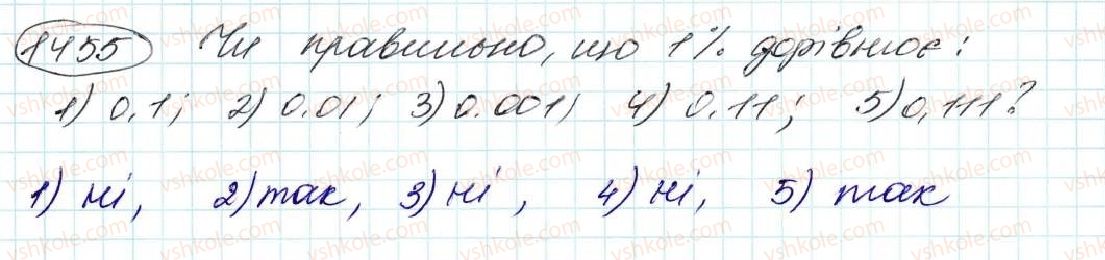 1455 Чи правильно, що 1% дорівнює:
1) 0,1; 2) 0.01; 3) 0.001; 4) 0.11; 5) 0,111?
1) ні, 2) так, 3) ні, 4) ні, 5) так